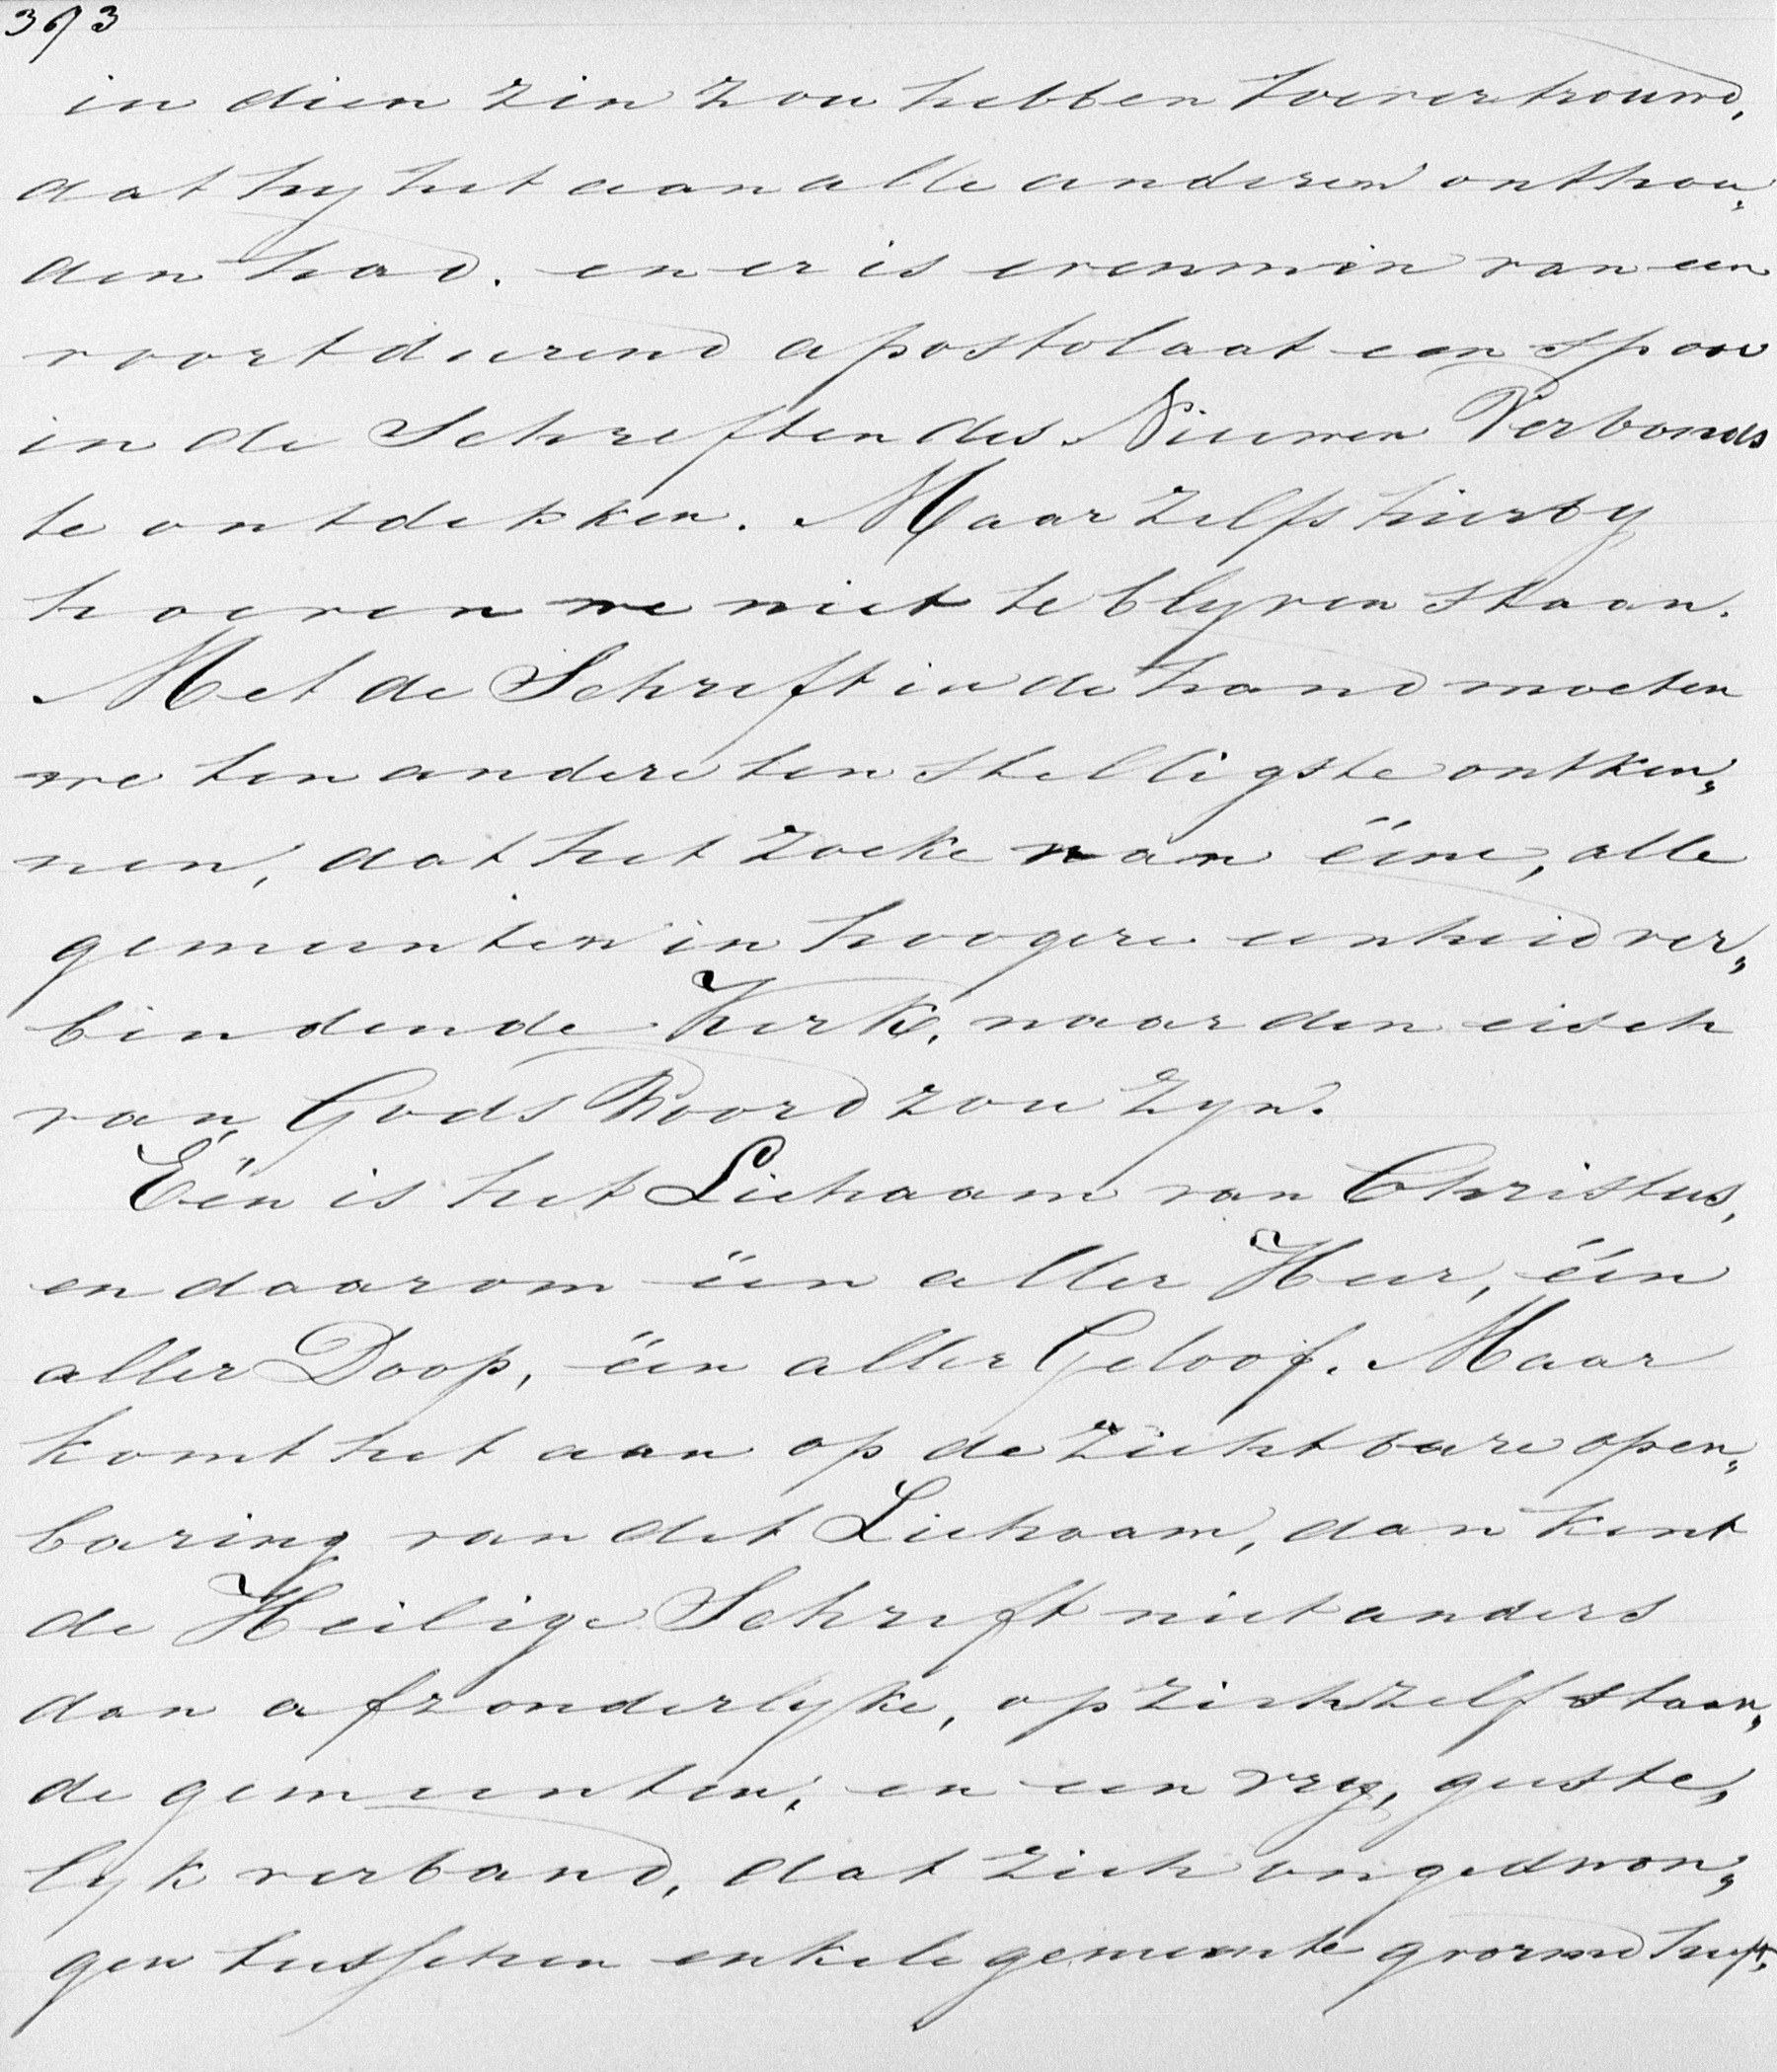 373
in dien zin zou hebben toevertrouwd,
dat hy het aan alle anderen onthou„
den had. en er is evenmin van een
voortdurend apostolaat een spoor
in de Schriften des Nieuwen Verbonds
te ontdekken. Maar zelfs hierby
hoeven we niet te blyven staan.
Met de Schrift in de hand moeten
we ten andere ten stelligste ontken„
nen, dat het zoeke van ééne, alle
gemeenten in hoogere eenheid ver„
bindende Kerk, naar den eisch
van Gods Woord zou zyn.
Eén is het Lichaam van Christus,
en daarom één aller Heer, één
aller Doop, één aller Geloof. Maar
komt het aan op de zichtbare open„
baring van dit Lichaam, dan kent
de Heilige Schrift niet anders
dan afzonderlyke, op zichzelf staan„
de gemeenten, en een vry, geeste„
lyk verband, dat zich ongedwon„
gen tusschen enkele gemeente gvormd heeft,